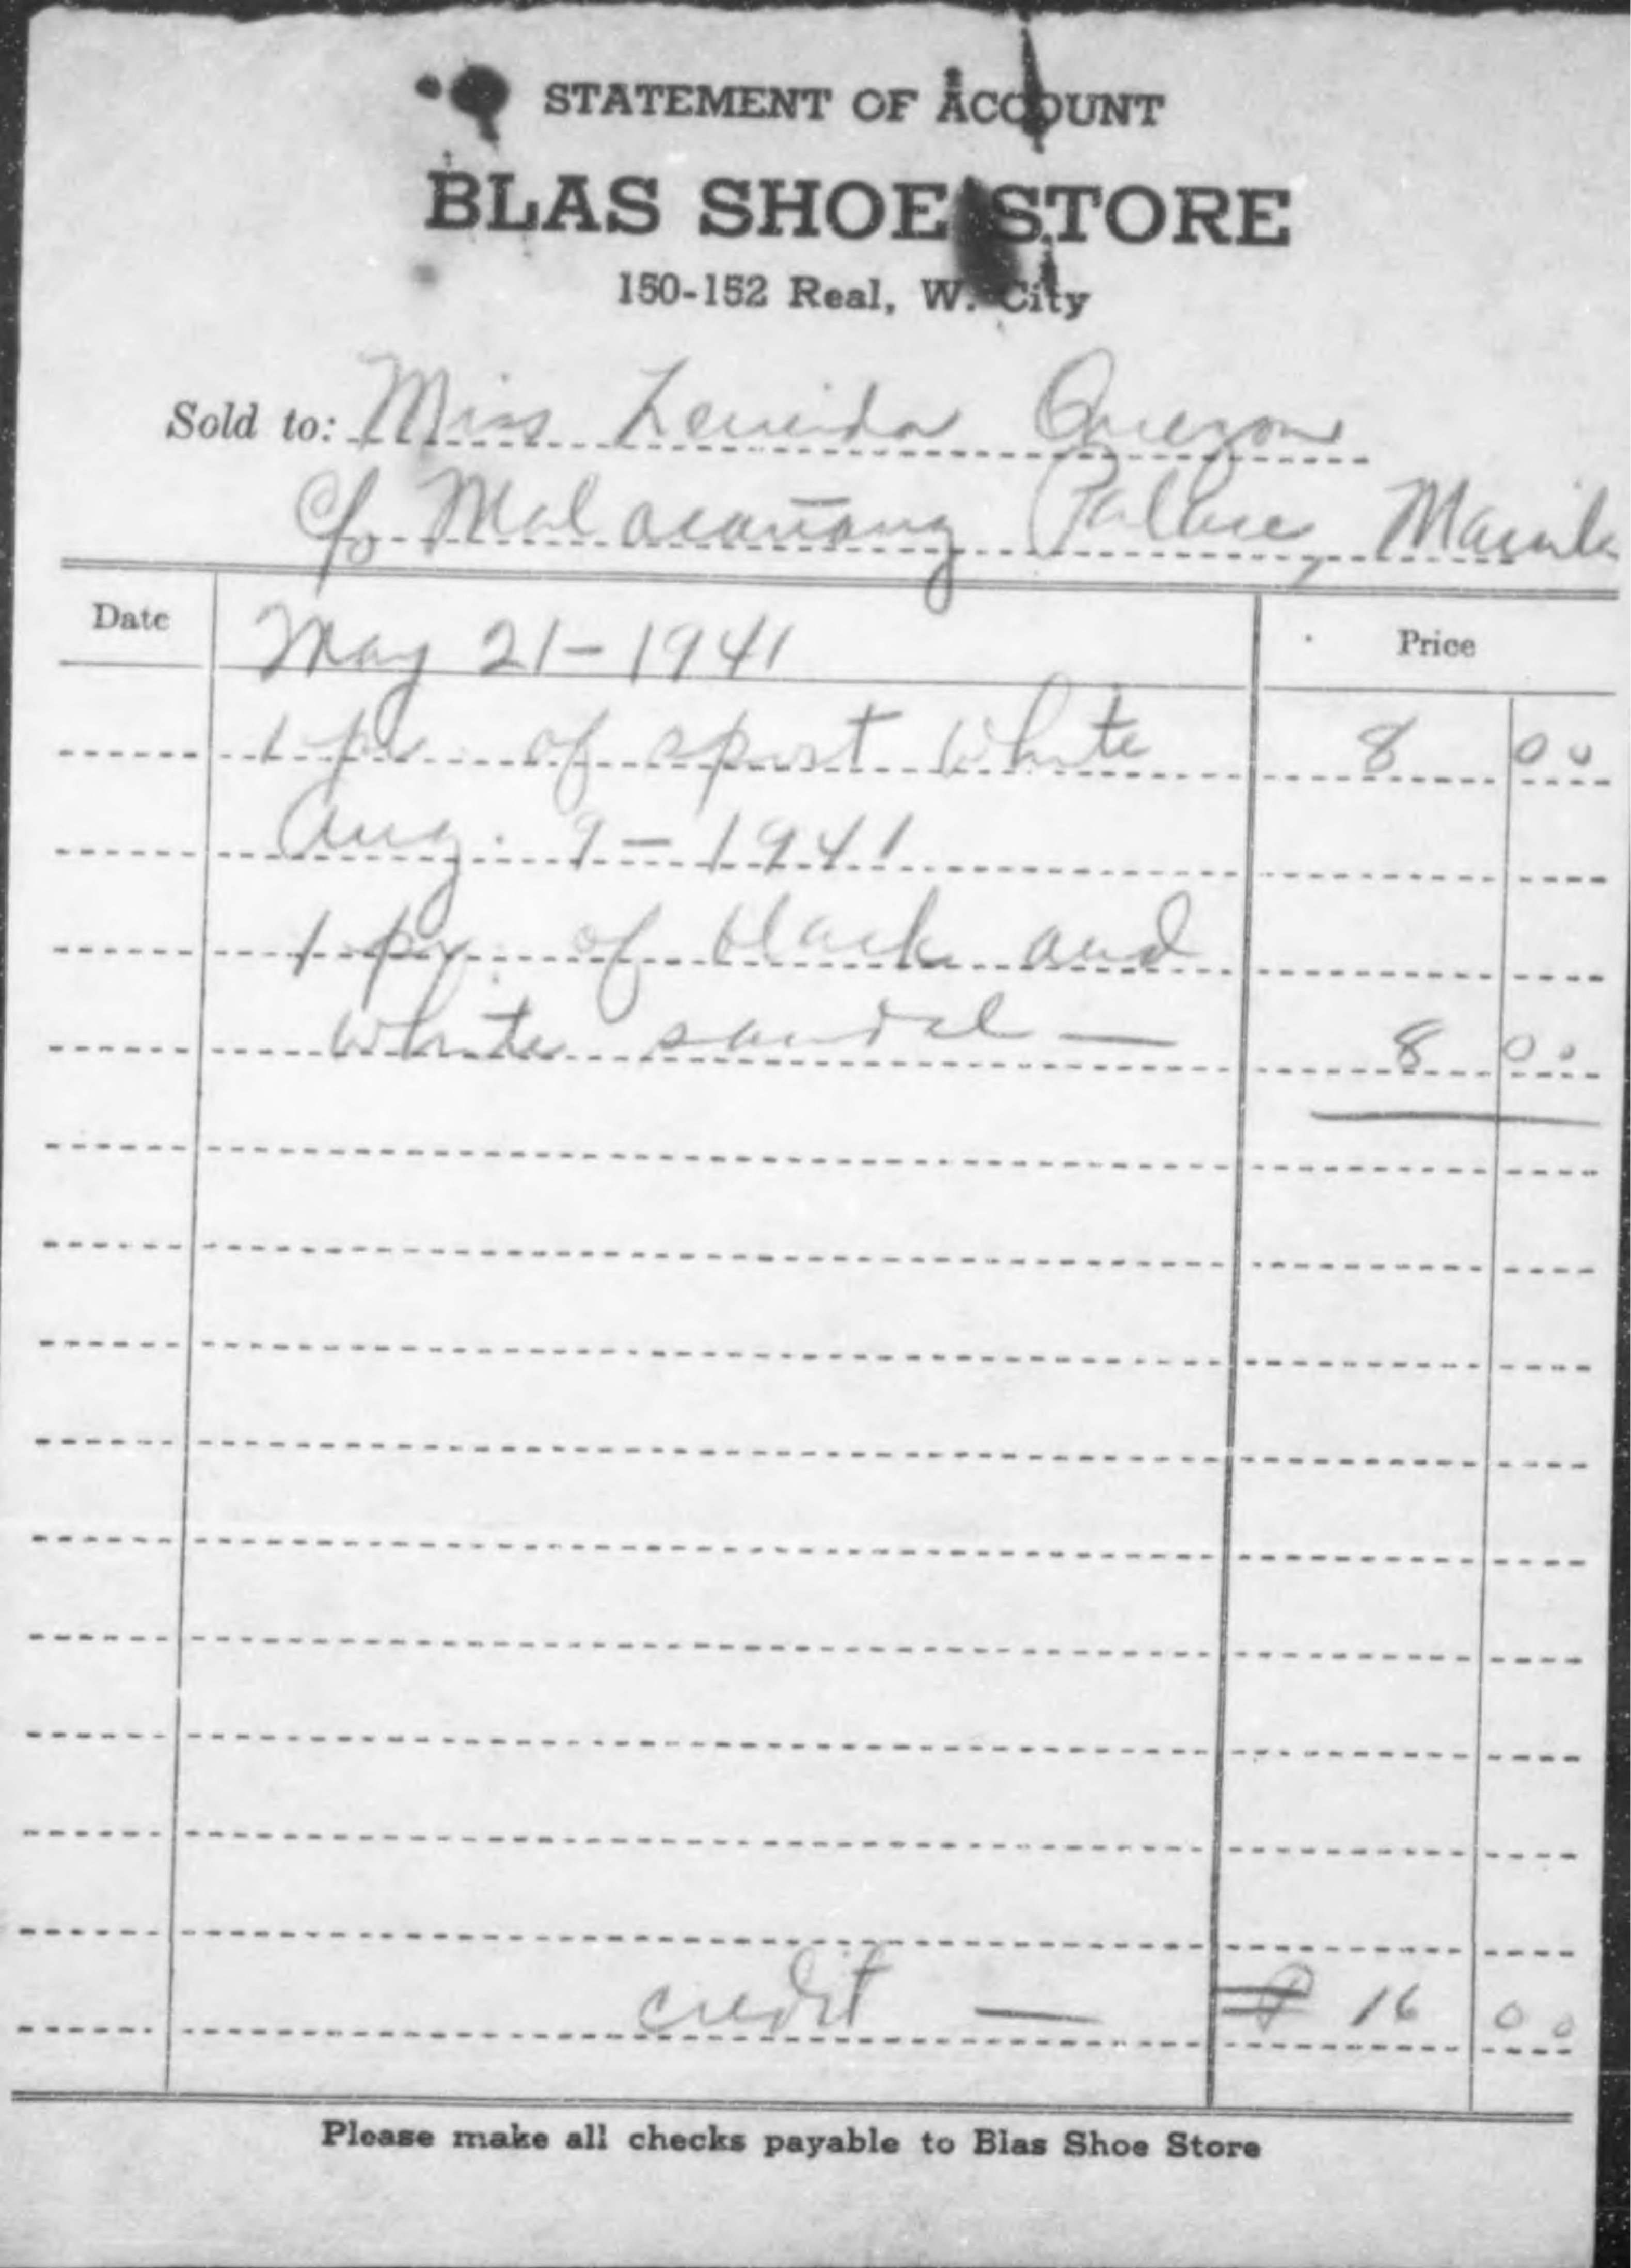 STATEMENT OF ACCOUNT
BLAS SHOE STORE
150-152 Real, W. City
Sold to: Miss Zeneida Quezon
c/o Malacañang Pallace, Manila
Date May 21-1941 Price
1 pr. of sport white 8 00
Aug. 9-1941
1 pr. of black and
white sandal — 8 00
credit — ₱ 16 00
Please make all checks payable to Blas Shoe Store